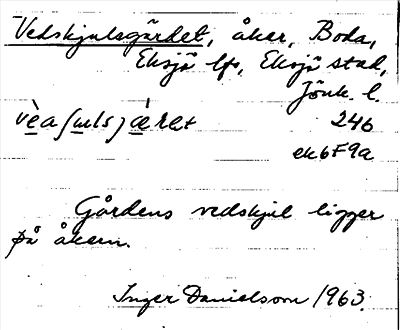 Vedskjulsgärdet, åker, Boda,
Eksjö lfs, Eksjö stad,
Jönk. l.
246
ek6F9a
Gårdens vedskjul ligger
på åkern.
Inger Danielsson 1963.